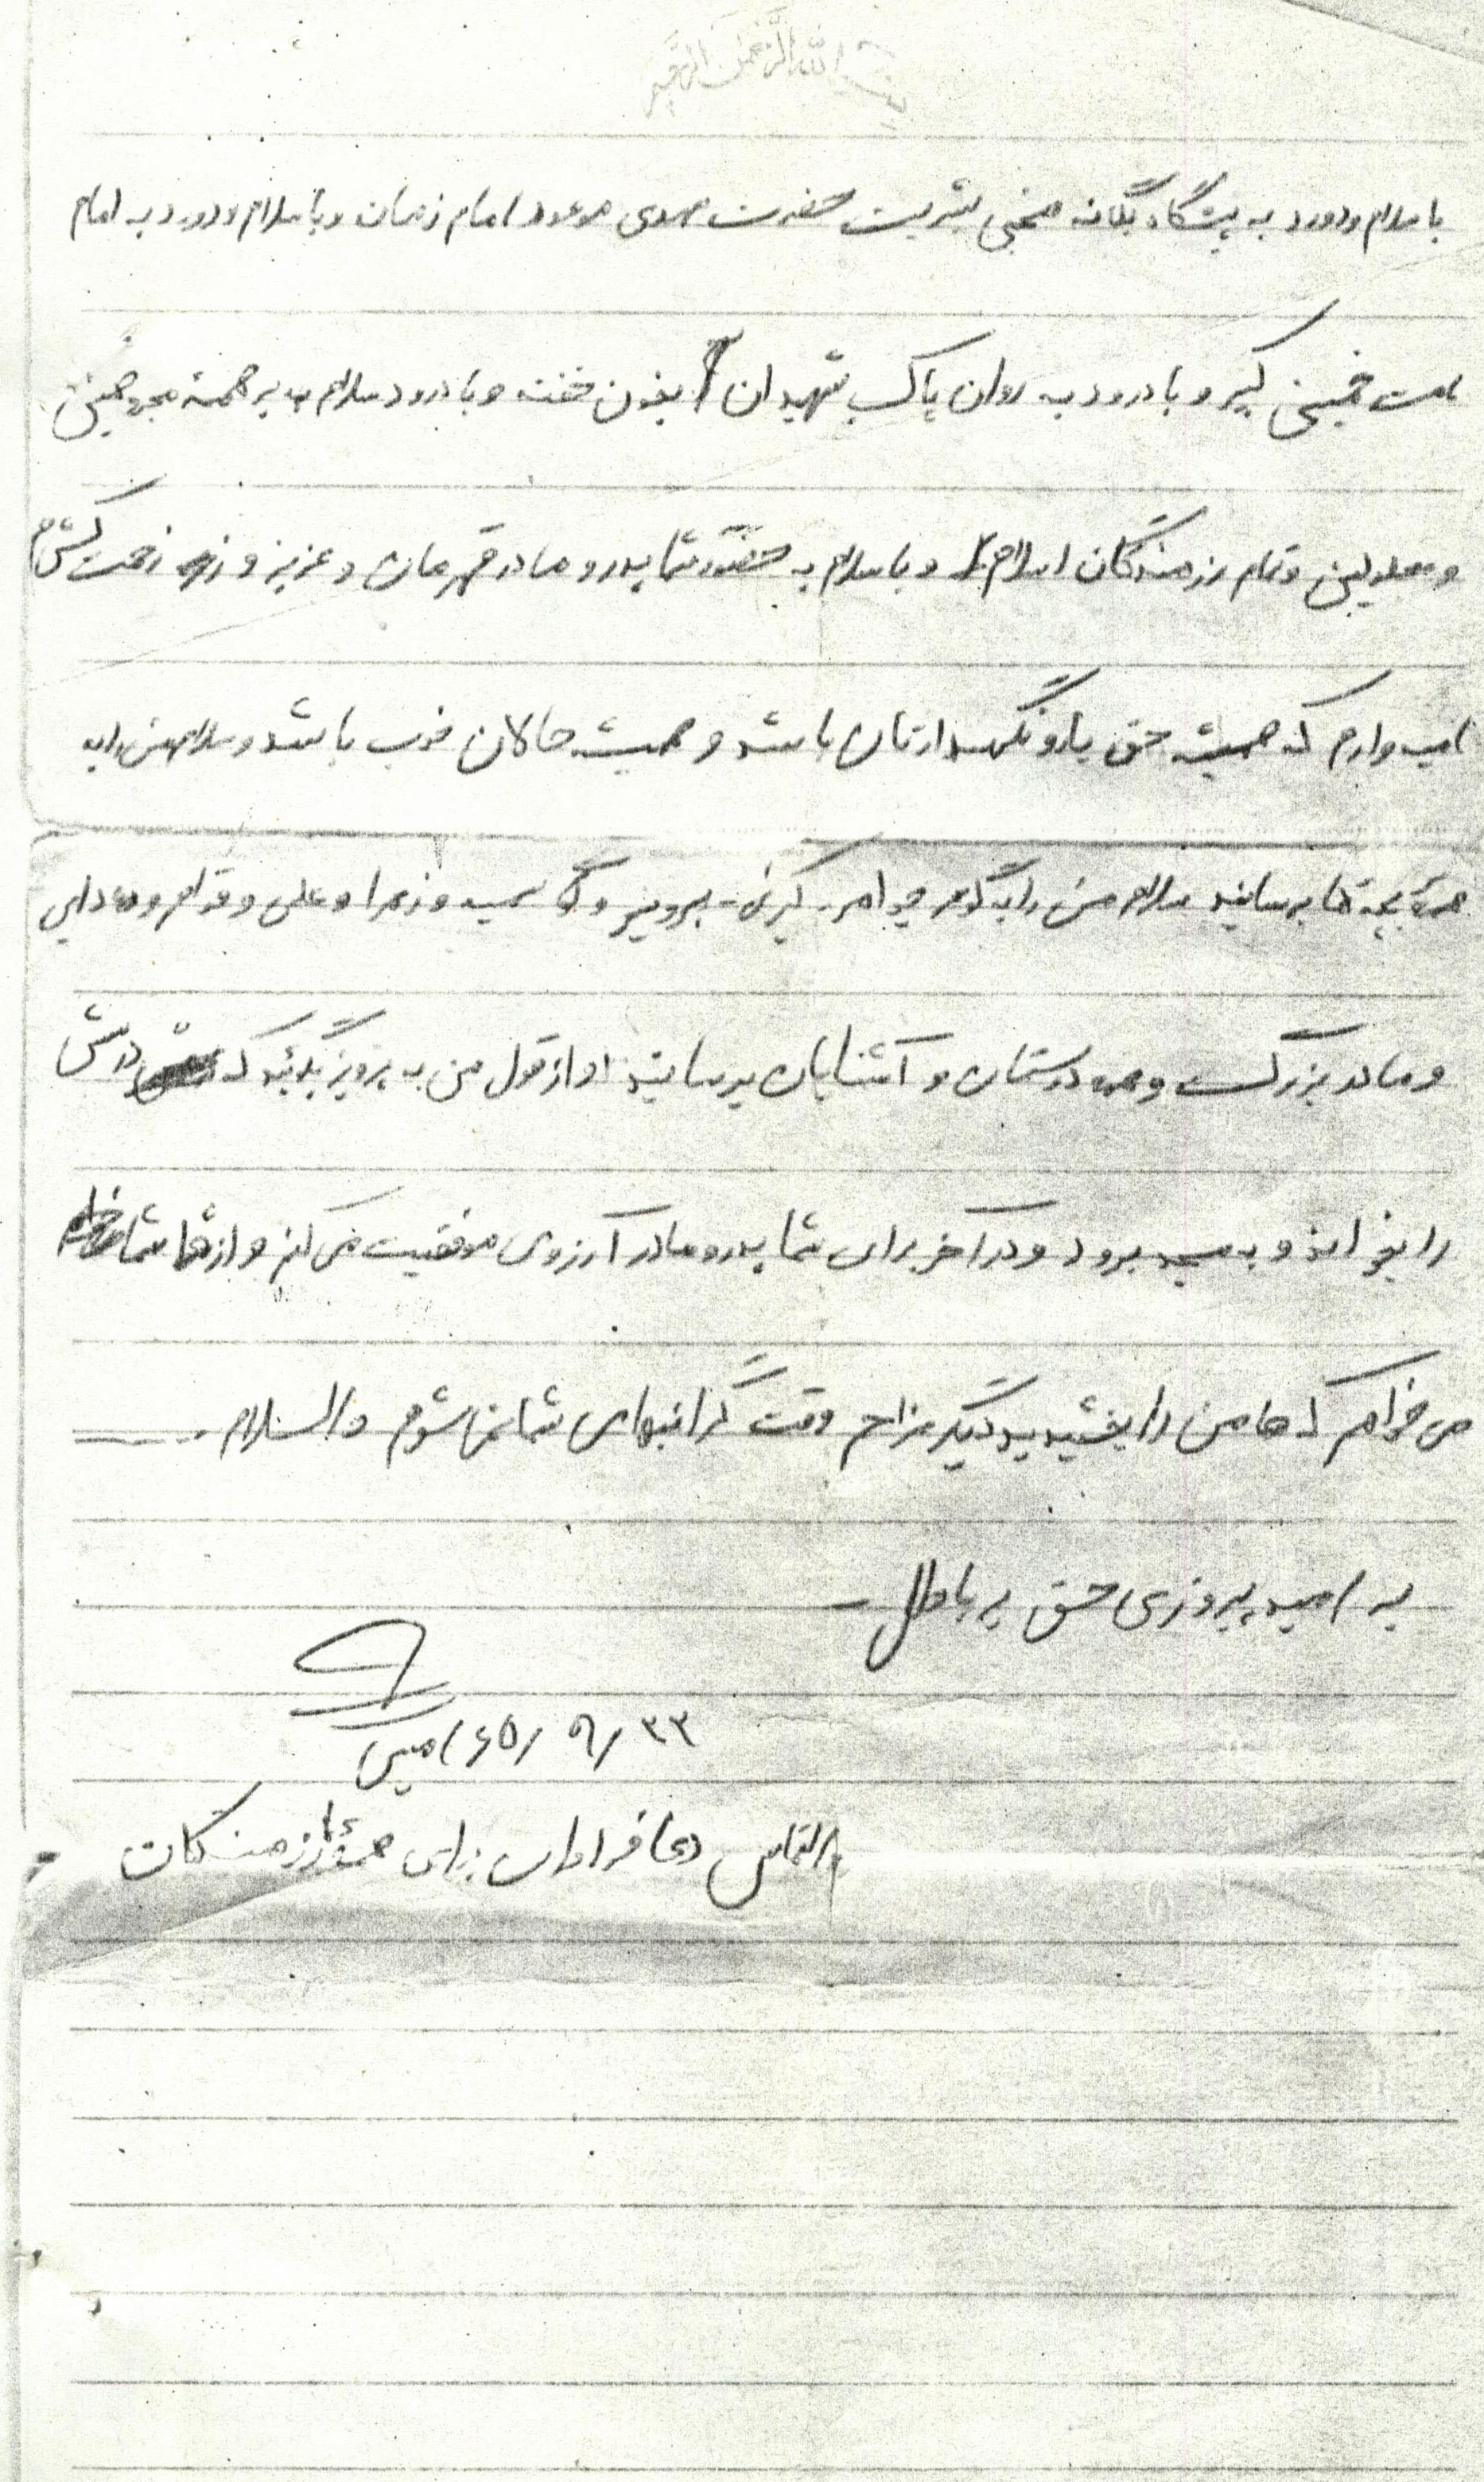 بسم الله الرحمن الرحیم
با سلام و درود به پیشگاه یگانه منجی بشریت حضرت مهدی موعود امام زمان و با سلام و درود به امام
امت خمینی کبیر و با درود به روان پاک شهیدان بخون خفته و با درود سلام به همه مجروحین
و معلولین و تمام رزمندگان اسلام و با سلام به حضور شما پدر و مادر قهرمان و عزیز و زحمت کشم
امیدوارم که همیشه حق یارو نگهدارتان باشد و همیشه حالتان خوب باشد و سلام من را به
همه بچه ها برسانید سلام من را به گوهر جواهر - کبری - پرویز و سعید و زهرا و علی و دایی
و مادر بزرگ و همه دوستان و آشنایان برسانید و از قول من به پرویز بگوئید که درسش
را بخواند و به مسجد برود و در آخر برای شما پدر و مادر آرزوی موفقیت می کنم و از شما
می خواهم که من را ببخشید دیگر مزاحم وقت گرانبهای شما نمی شوم والسلام
به امید پیروزی حق بر باطل
۶۵/ ۹/ ۲۳
التماس دعا فراوان برای همه رزمندگان